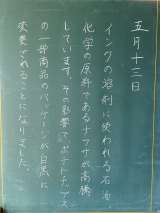 五月十三日
インクの溶剤に使われる石油
化学の原料であるナフサが高騰
しています。その影響でポテトチップス
の一部商品のパッケージが白黒に
変更されることになりました。